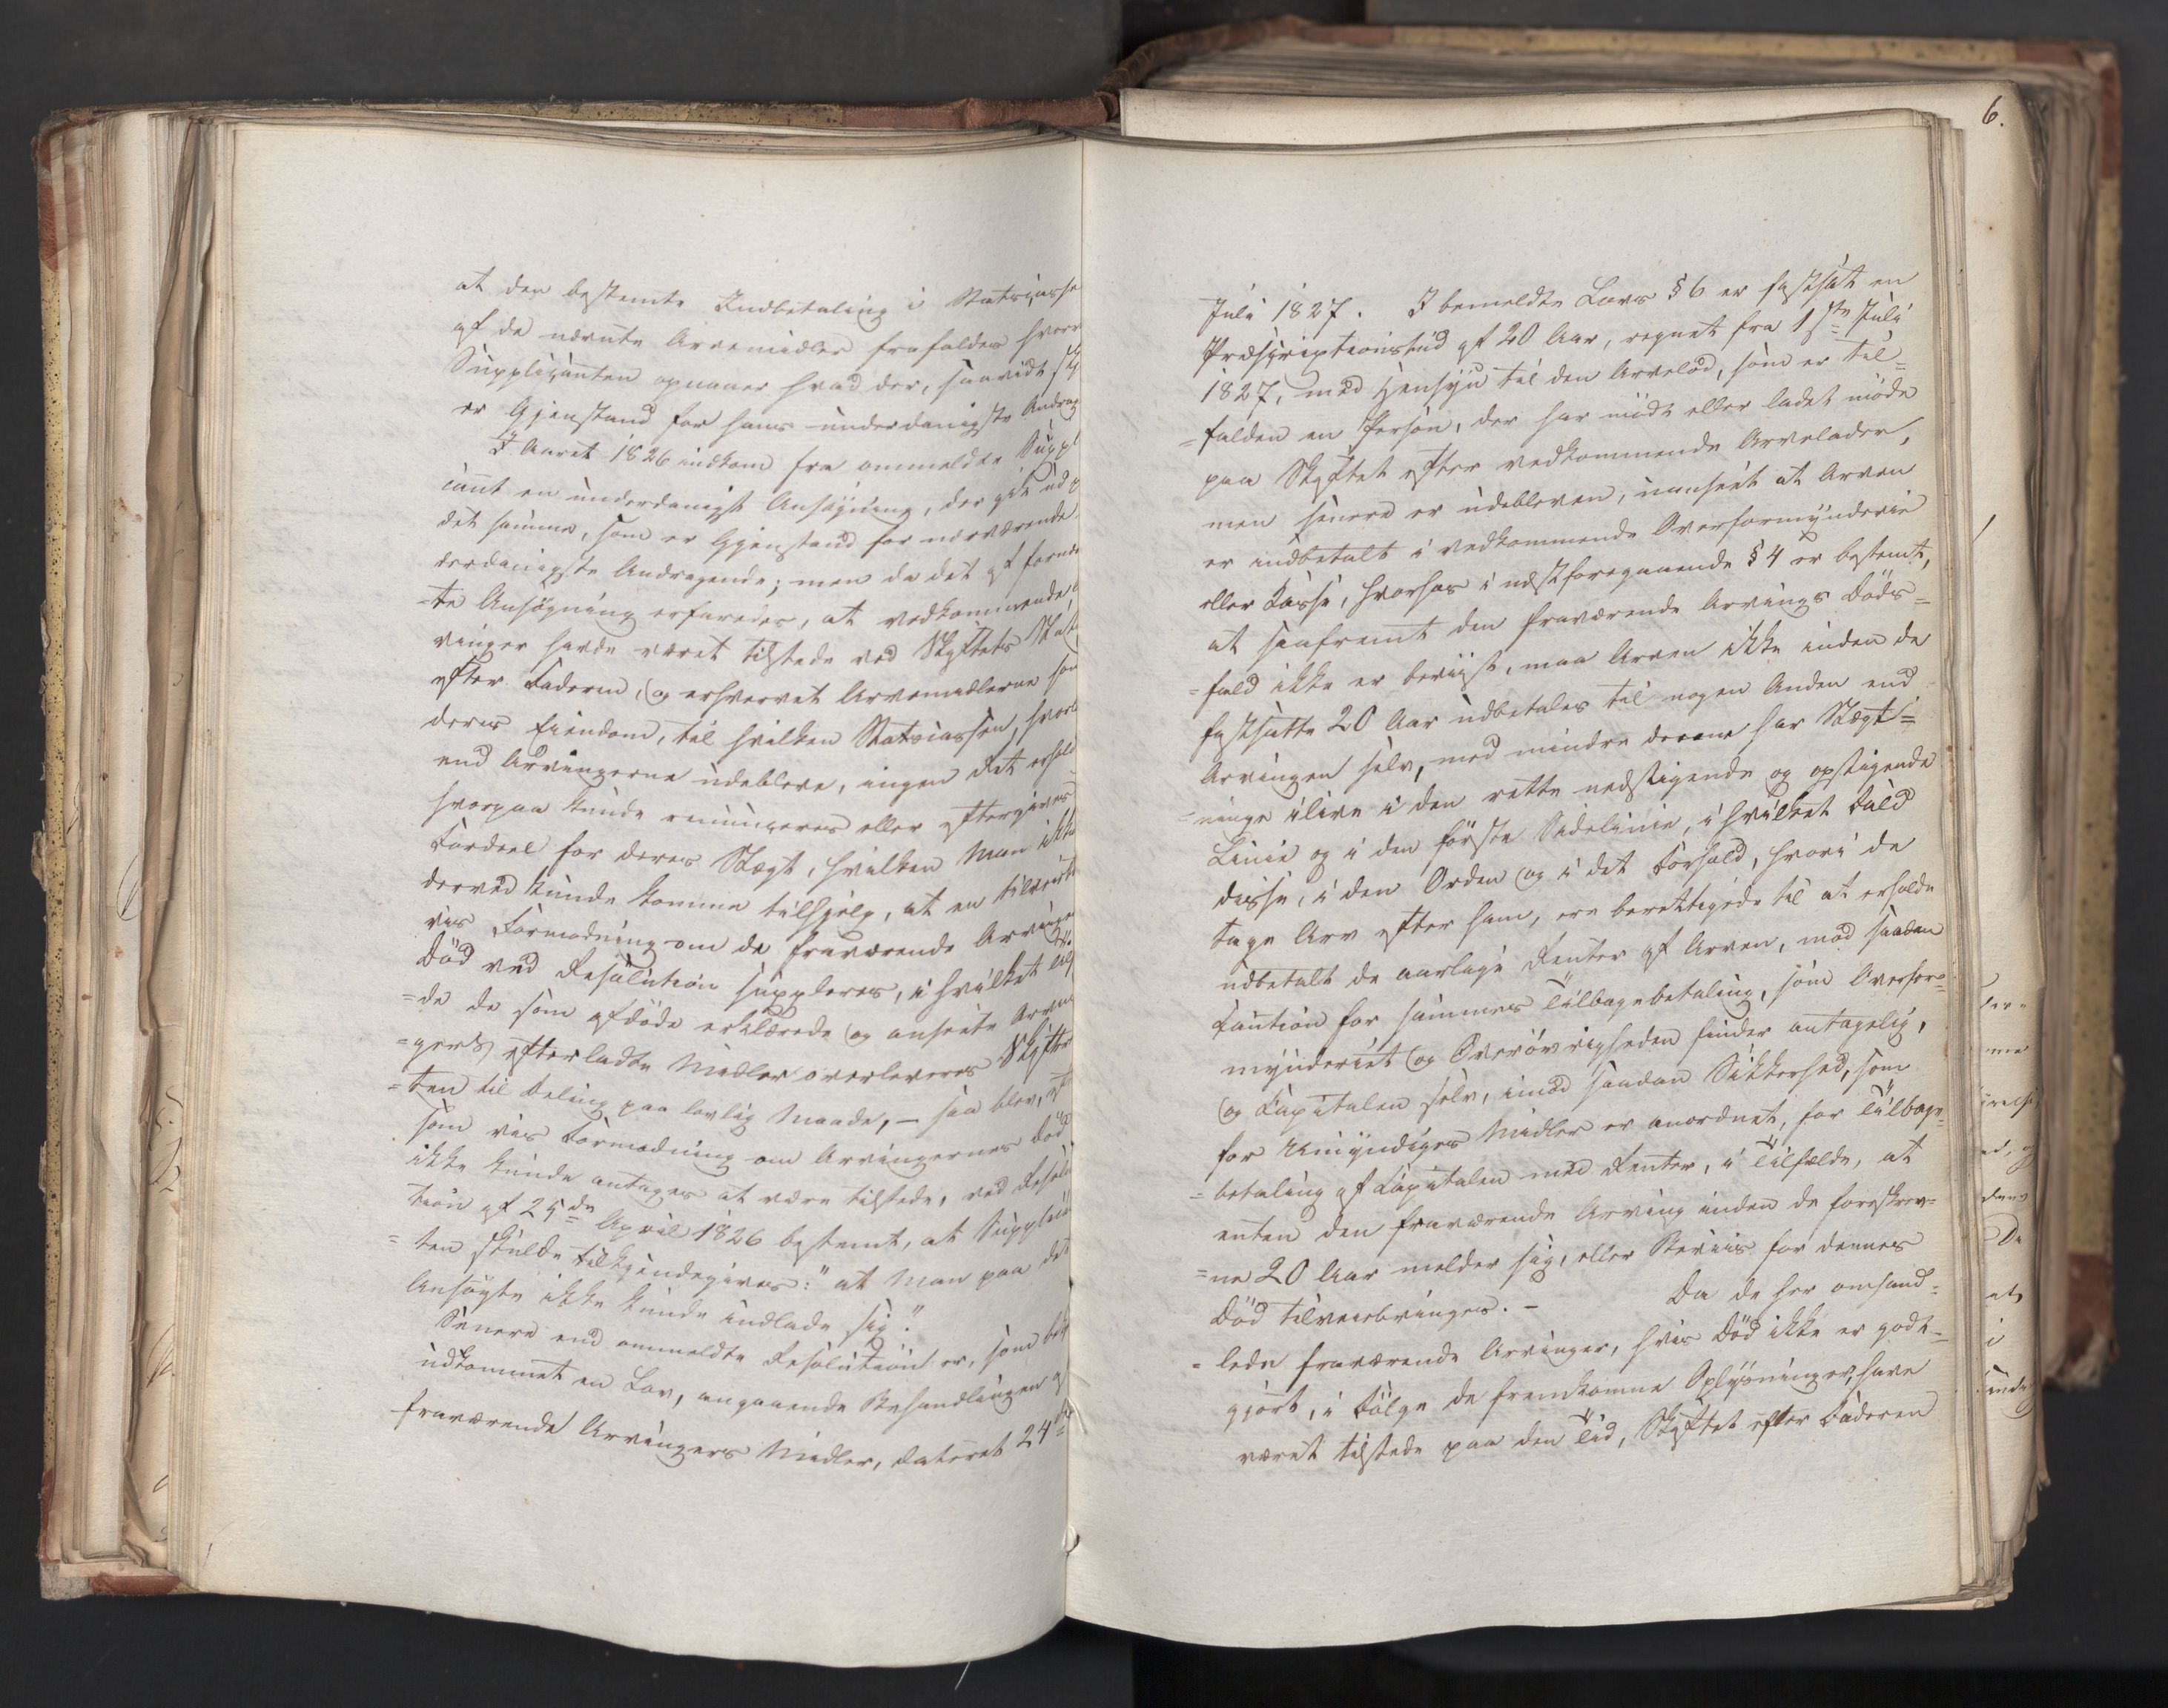 at den bestemte Indbetaling i Statscasse
af de nævnte Arvemidler frafaldes hvor
Supplicanten opnaaer hvad der, saavidt
er Gjenstand for hans underdanigste Andrag
I Aaret 1826 indkom fra ommeldte Suppl
icant en underdanigst Ansøgning, der gik ud p
det samme, som er Gjenstand for nærværende
derdanigste Andragende; men da det af formeld
-te Ansøgning erfaredes, at vedkommende
vinger havde været tilstede ved Skiftets
efter Faderen, og erhvervet Arvemidlerne som
deres Eiendom, til hvilken Statscassen, hvorl
end Arvingerne udebleve, ingen Ret erhol
hvorpaa kunde renunceres eller eftergives
Fordeel for deres Slægt, hvilken man ikke
derved kunde komme tilhjelp, at en tilvæie
vis Formodning om de fraværende Arvinger
Død ved Resolution suppleres, i hvilket Tilf
=de de som afdøde erklærede og anséete Arvin
=gers efterladte Midler overleveres Skifter
=ten til Deling paa lovlig Maade, – saa blev,
som vis Formodning om Arvingernes Død
ikke kunde antages at være tilstede, ved Resolu
tion af 25de April 1826 bestemt, at Supplican
=ten skulde tilkjendegives: "at Man paa det
Ansøgte ikke kunde indlade sig".
Senere end ommeldte Resolution er, som bek
udkommet en Lov, angaaende Behandlingen af
fraværende Arvingers Midler, dateret 24de
6.
Juli 1827. I bemeldte Lovs § 6 er fastsat en
Præscriptionstid af 20 Aar, regnet fra 1ste Juli
1827, med Hensyn til den Arvelod, som er til=
=falden en Person, der har mødt eller ladet møde
paa Skiftet efter vedkommende Arvelader,
men senere er udebleven, uanseet at Arven
er indbetalt i vedkommende Overformynderie
eller Casse, hvorhos i næstforegaaende § 4 er bestemt,
at saafremt den fraværende Arvings Døds=
=fald ikke er beviist, maa Arven ikke inden de
fastsatte 20 Aar udbetales til nogen Anden end
Arvingen selv, med mindre denne har Slægt=
=ninge ilive i den rette nedstigende og opstigende
Linie og i den første Sidelinie, i hvilket Fald
disse, i den Orden og i det Forhold, hvori de
tage Arv efter ham, ere berettigede til at erholde
udbetalt de aarlige Renter af Arven, mod saadan
Caution for sammes Tilbagebetaling, som Overfor=
mynderiet og Overøvrigheden finder antagelig,
og Capitalen selv, imod saadan Sikkerhed, som
for Umyndiges Midler er anordnet, for Tilbage=
=betaling af Capitalen med Renter, i Tilfælde, at
enten den fraværende Arving inden de foreskrev=
=ne 20 Aar melder sig, eller Beviis for dennes
Død tilveiebringes. – Da de her omhand=
=lede fraværende Arvinger, hvis Død ikke er godt=
gjort, i Følge de fremkomne Oplysninger, have
været tilstede paa den Tid, Skiftet efter Faderen